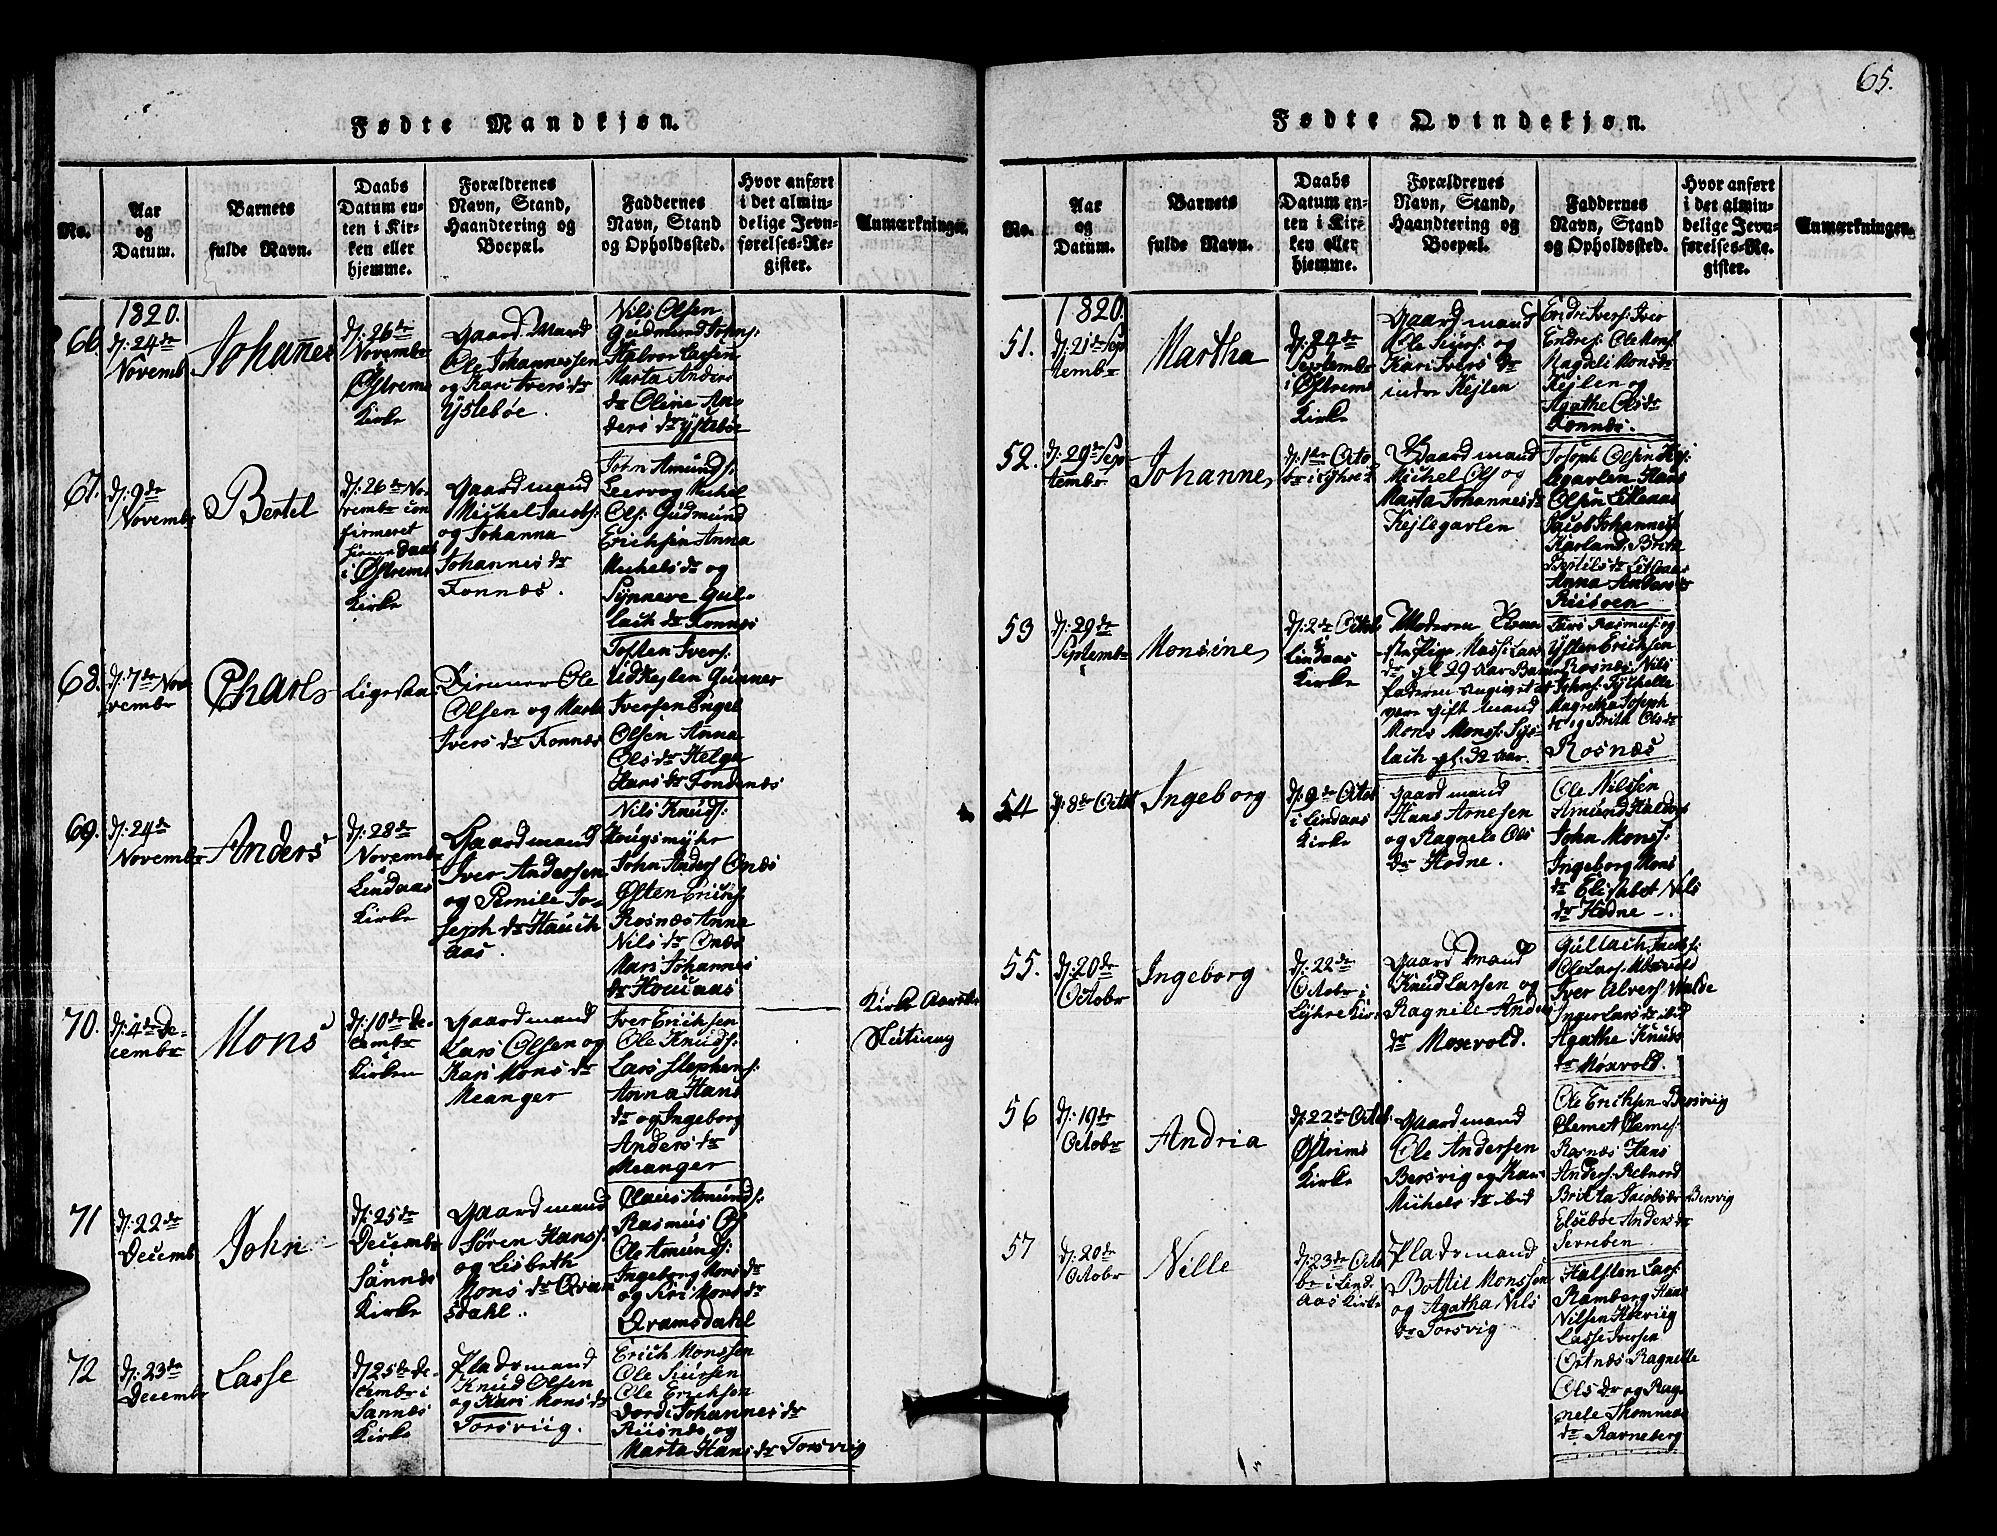 65.
Fødte Mandkjøn.
No.
Aar
og
Datum.
Barnets
fulde Navn.
Daabs
Datum en-
ten i Kir-
ken eller
hjemme.
Forældrenes
Navn, Stand,
Haandtering og
Boepæl.
Faddernes
Navn, Stand
og Opholdssted.
Hvor anført
i det almin-
delige Jevn-
førelses-Re-
gister.
Anmærkninger.
1820.
66.
d: 24de
Novemb
Johañes
d: 26de
Novembr
Østrems
Kirke
Gaard Mand
Ole Johannessen
og Kari Ivers dr
Ystebøe.
Nils Olsen
Gudmund Johns:
Halvor Larsen
Marta Anders
dr Oline An-
ders dr Ystebøe
67.
d: 9de
Novembr
Bertel
d: 26de No-
vembr con
firmeret
hiemedaab
i Østrems
Kirke
Gaardmand
Michel Jacobs:
og Johanna
Johannes dr
Fonnæs.
John Amunds:
Leervog Michel
Ols: Gudmund
Erichsen Anna
Michels dr og
Synneve Gul-
lach dr Fonnæs
68.
d: 7de No-
vembr
Charls
Ligesaa
Ole
Olsen og Marta
Ivers dr Fonnæs
Tosten Ivers:
Udkejlen Gunner
Iversen Engel
Olsen Anna
Ols dr Helga
Hans dr Fondenæs
69.
d: 24de
Novembr
Anders
d: 28de
Novembr
Lindaas
Kirke
Gaardmand
Iver Andersen
og Pernile Jo-
seph dr Hauch
aas.
Nils Knuds:
Hougsmyhr
John Anders: Onæs
Østen Erichs:
Rosnæs Anna
Nils dr Onæs
Mari Johannes
dr Houchaas
70.
d: 4de De-
cembr
Mons
d: 10de De-
cembr
Kirken
Gaardmand
Lars Olsen og
Kari Mons dr
Meanger
Iver Erichsen
Ole Knuds:
Lars Stephens:
Anna Hans
dr og Ingeborg
Anders dr
Meanger
Kirke Aarets
Slutning
71
d: 22de
Decemb
John
d: 25de
Decembr
Sannæs
Kirke
Gaardmand
Søren Hans:
og Lisbeth
Mons dr Qvam
sdahl.
Claus Amunds:
Rasmus Ols
Ole Amunds:
Ingeborg Mons dr
og Siri Mons dr
Qvamsdahl
72
d: 23de
Decembr
Lasse
d: 25de De-
cembr i
Sannæs
Kirke
Pladsmand
Knud Olsen
og Kari Mons dr
Torsviig.
Erich Monssen
Ole Siursen
Ole Erichsen
Dordi Johannes dr
Riisnæs og
Marta Hans dr Torsviig
Fødte Qvindekjøn.
No.
Aar
og
Datum.
Barnets
fulde Navn.
Daabs
Datum en-
ten i Kir-
ken eller
hjemme.
Forældrenes
Navn, Stand,
Haandtering og
Boepæl.
Faddernes
Navn, Stand
og Opholdssted.
Hvor anført
i det almin-
delige Jevn-
førelses-Re-
gister.
Anmærkninger.
1820.
51.
d: 21de Sep
tembr
Martha
d: 24de
Septembr
i Østrems
Kirke
Gaardmand
Ole Siurs: og
Kari Ivers dr
indre Kejlen
Endre Ivers: Iver
Endres: Ole Mons:
Magdeli Mons dr
Kejlen og
Agathe Ols dr
Fonnæs.
52.
d: 29de Sep
tembr
Johanne
d: 1ste Octo
br i Lyhre K
Gaardmand
Michel Ols og
Marta Johannes dr
Kejlegavlen
Joseph Olsen Kej
legavlen Hans
Olsen Lillaas
Jacob Johannes:
Karland, Brita
Bertils dr Lillaas
Anna Anders dr
Riisøen
53
d: 29de
Septembr
Monsine
d: 2de Octob
Lindaas
Kirke
Moderen Qvin
Massi Lars
dr gl 29 Aar Barne
faderen angivet at
være gift mand
Mons Mons:
lach gl: 32 Aar.
Lars Rasmus: og
Østen Erichsen
Rosnæs Nils
Johns: Fyhlle
Magretha Joseph
dr og Brita Ols dr
Rosnæs
54
d: 8de Octob
Ingeborg
d: 9de Octob
i Lindaas
Kirke
Gaardmand
Hans Arnesen
og Ragnele Ols
dr Hodne.
Ole Nilssen
Amund Haldors
John Mons:
Ingeborg Mons
dr Elisabet Nils
dr Hodne
55.
d: 20de
Octobr
Ingeborg
d: 22de
Octobr i
Lyhre Kir
Gaard Mand
Knud Larsen og
Ragnele Anders
dr Moxvold.
Gullach Jacobs:
Ole Lars: Moxvold
Iver Alvers: Walde
Inger Lars dr ibid
Agathe Knuds
dr Moxvold.
56
d: 19de
Octobr
Andria
d: 22de Octob
Østrems
Kirke
Gaardmand
Ole Andersen
Bersvig og Kari
Michels dr ibid
Ole Erichsen Bersviig
Clemet Clemes:
Rosnæs Hans
Anders:
Brikta Jacobs dr Bersvig
Elsebøe Anders dr
57
d: 20de
Octobr
Nille
d: 23de Octo
br i Lind
aas Kirke
Pladsmand
Bottil Monssen
og Agatha Nils
dr Torsviig
Halsten Lars:
Ramberg Hans
Nilsen
Lasse Iversen
Ortnæs Ragnille
Ols dr og Rag-
nele Thommas
dr Ravneberg